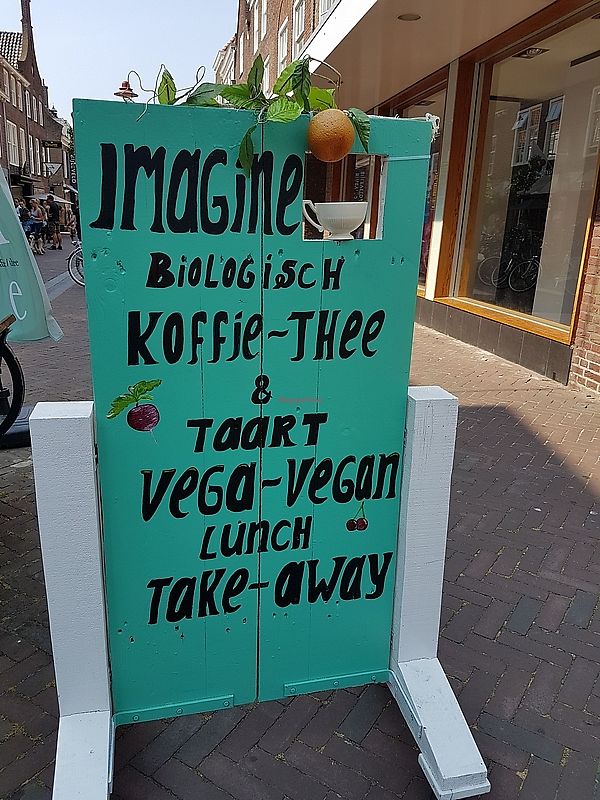 IMAGINE
BIOLOGISCH
KOFFIE~THEE
&
TAART
VEGA~VEGAN
LUNCH
TAKE-AWAY